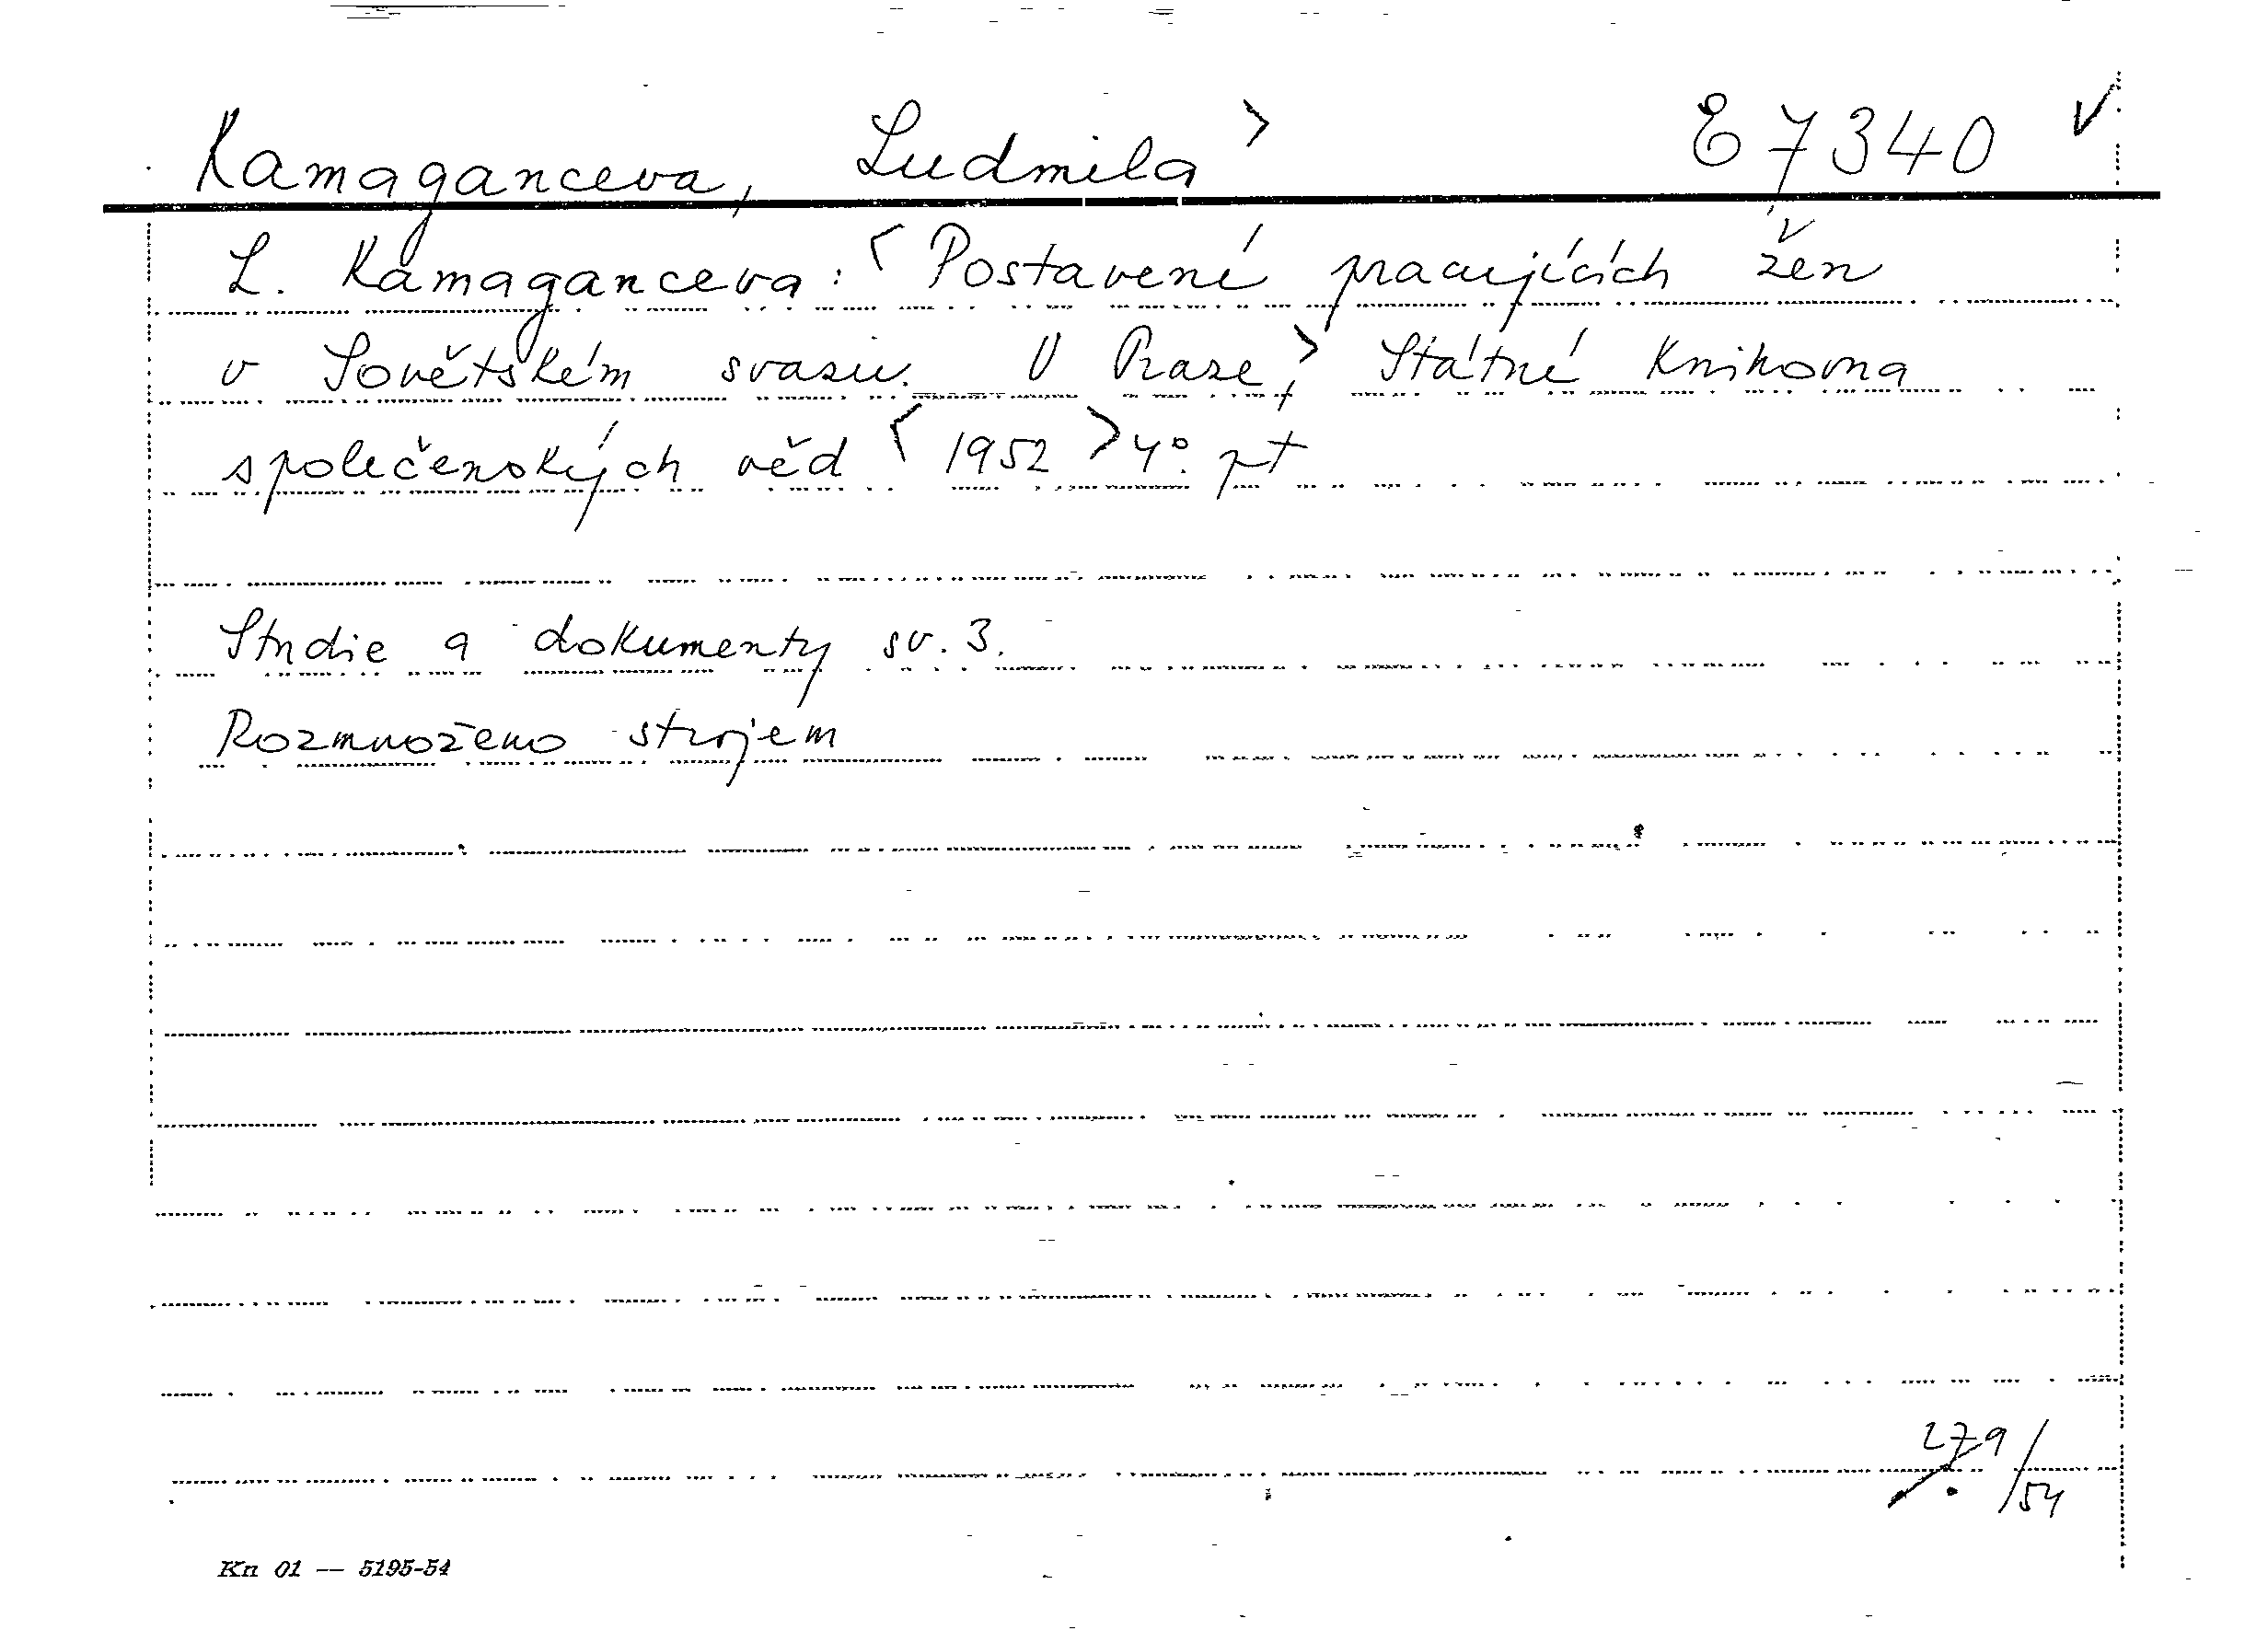 Kamaganceva, Ludmila > E 7340 ✓
L. Kamaganceva: < Postavení pracujících žen
v Sovětském svasu. V Praze, > Státné Knihovna
společenských věd < 1952 > 4°. pt
Studie a dokumenty sv. 3.
Rozmnoženo strojem
279/54
Kn 01 — 5195-54